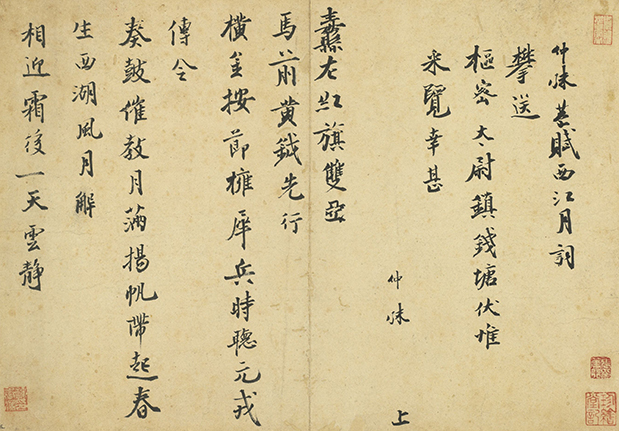 仲殊謹賦西江月詞
攀送
樞密太尉鎮錢塘伏惟
采覽幸甚
仲殊 上
紅旗雙亞
馬前黃鉞先行
橫金按節擁犀兵時聽元戎
傳令
奏鼓催教月滿揚帆帶起春
生西湖風月解
相迎霜後一天雲靜